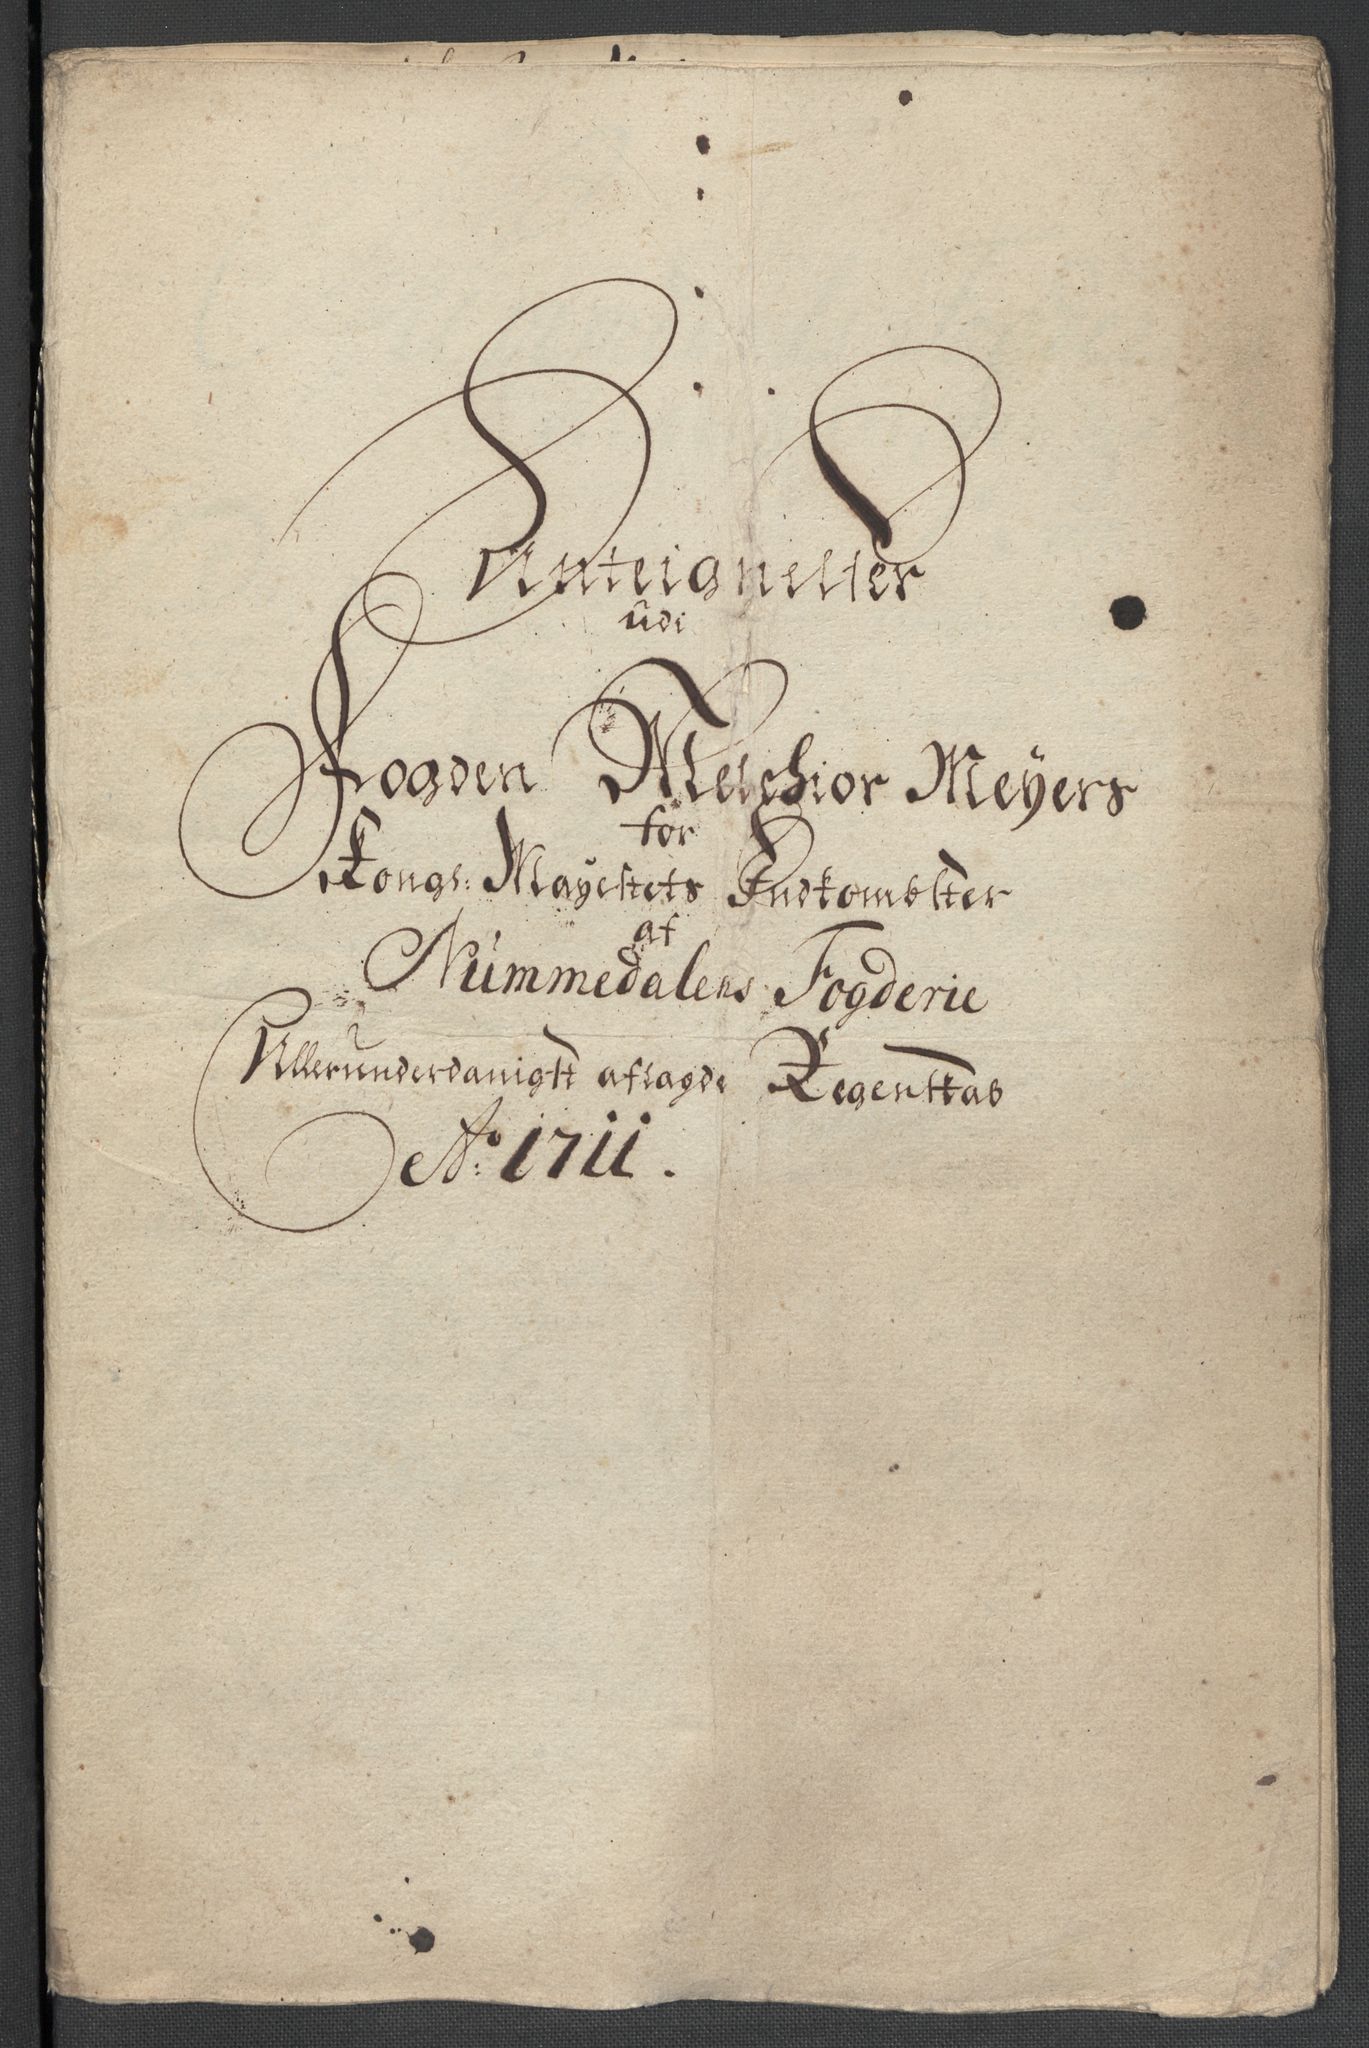 Anteignelser
udi
Fogden Melchior Meyers
for
Kongl: Mayestets Indkombster
af
Nummedalens Fogderie
Allerunderdanigst aflagde Regenskab
Ao: 1711.